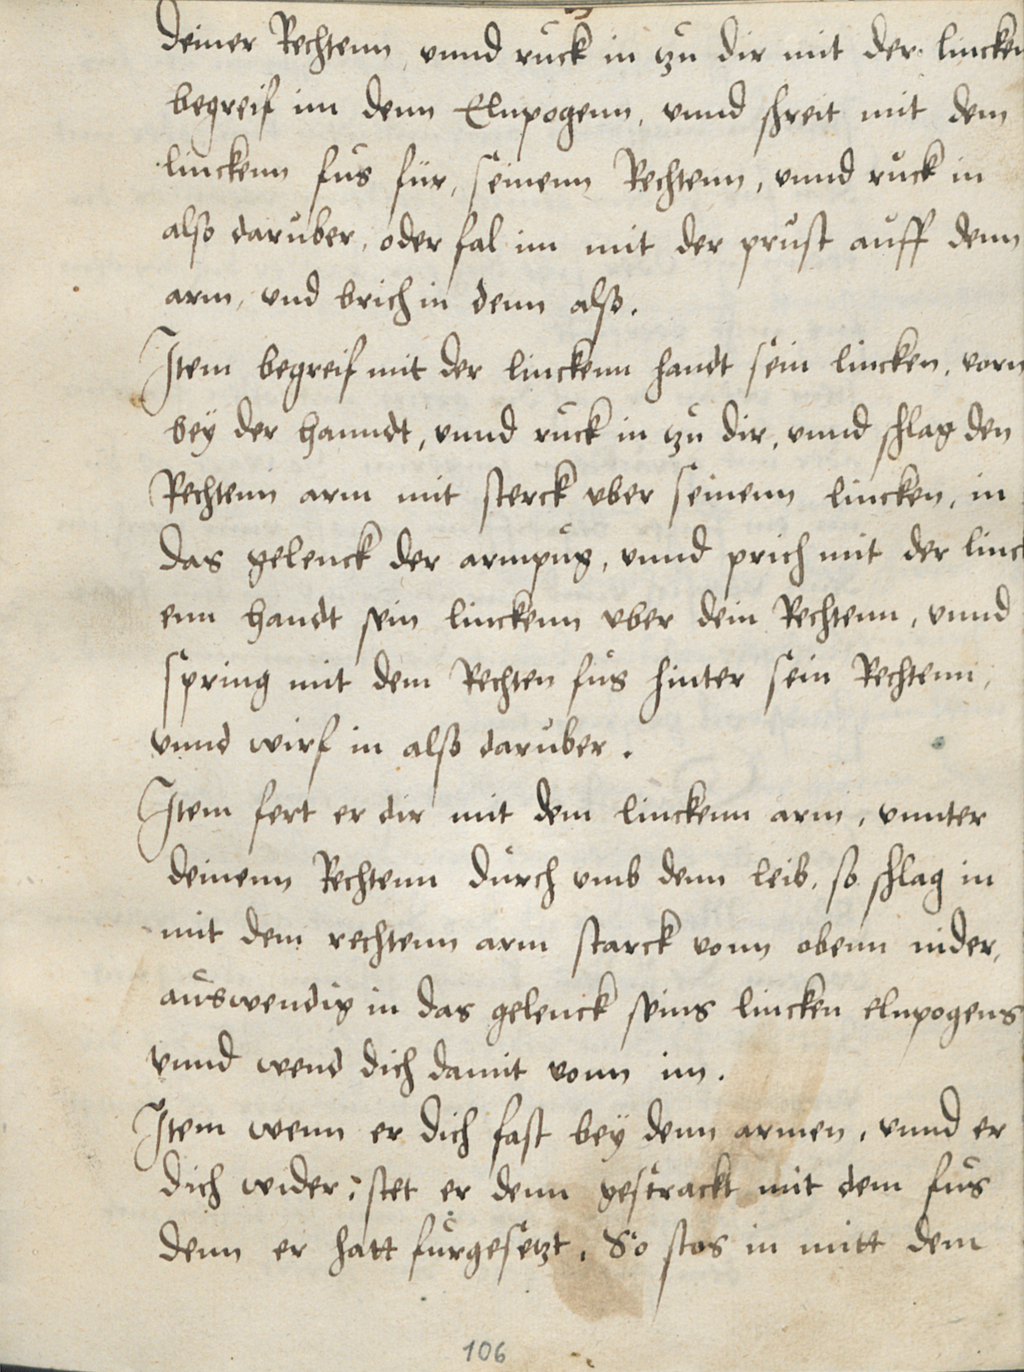 deiner Rechtenn, vnnd ruck in zu dir mit der lincken
begreif im denn Elnpogenn, vnnd schreit mit dem
linckenn fus für, seinenn Rechtenn, vnnd ruck in
also daruber, oder fal im mit der prust auff denn
arm, vnd brich in denn also.
Item begreif mit der linckenn handt sein lincken, vorn
bey der hanndt, vnnd ruck in zu dir, vnnd schlag den
Rechtenn arm mit sterck vber seinenn lincken, in
das gelenck der armpug, vnnd prich mit der linck
enn handt sein linckenn vber dein Rechtenn, vnnd
spring mit dem Rechten fus hinter sein Rechtenn,
vnnd wirf in also daruber.
Item fert er dir mit dem linckenn arm, vnnter
deinenn Rechtenn durch vmb denn leib, so schlag in
mit dem rechtenn arm starck vonn obenn nider,
auswendig in das gelenck seins lincken elnpogens
vnnd wend dich damit vonn im.
Item wenn er dich fast bey denn armen, vnnd er
dich wider, stet er denn gestrackt mit dem fus
denn er hatt furgesetzt, So stos in mitt dem
106